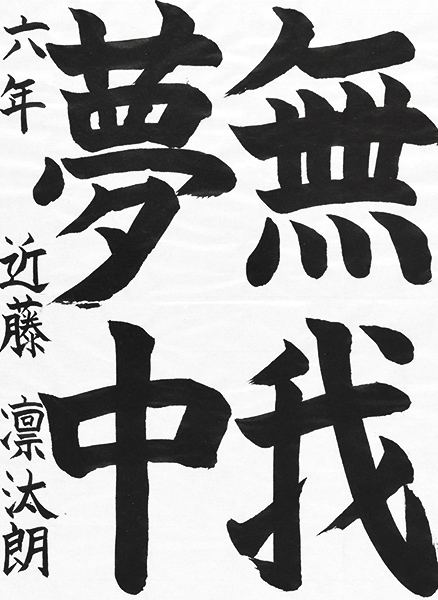 無我
夢中
六年 近藤 凛汰朗